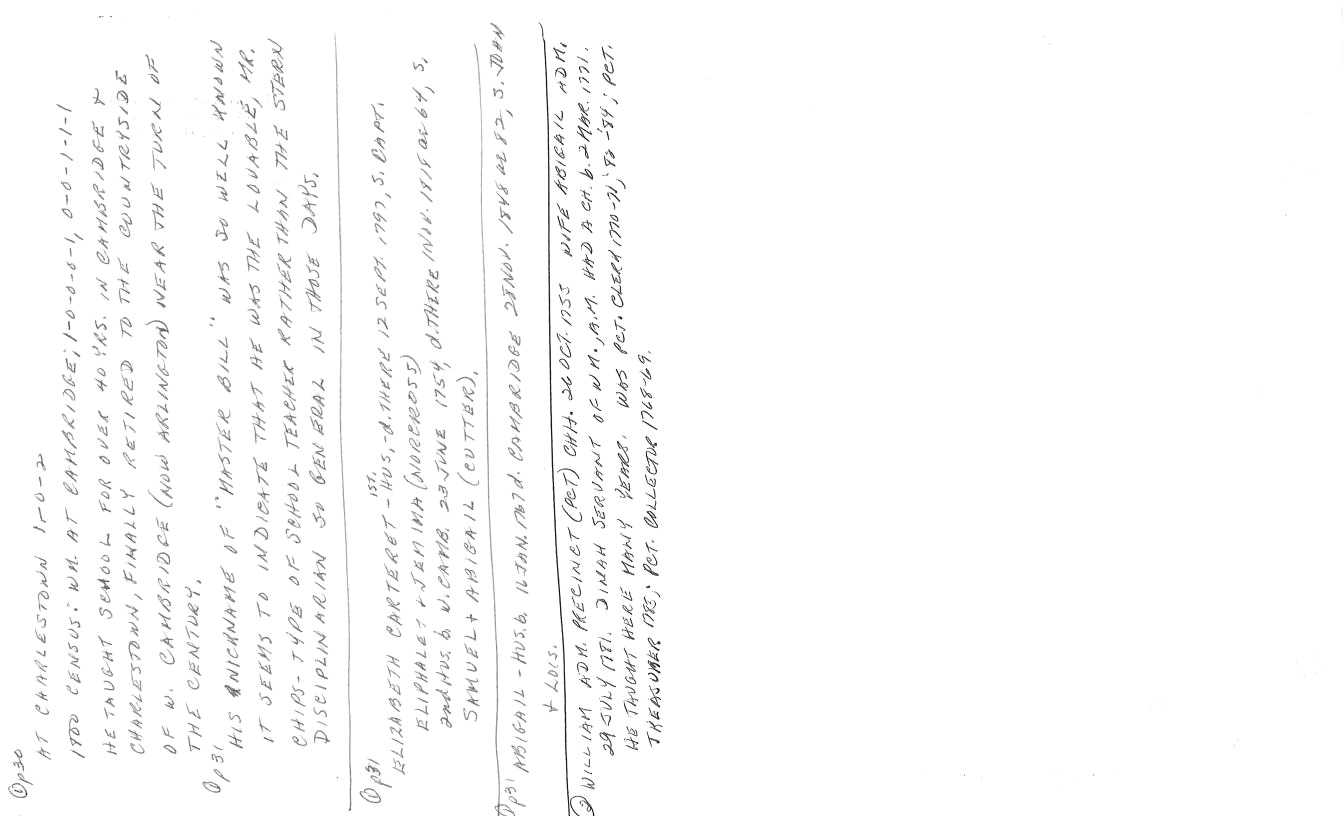 ① p30
AT CHARLESTOWN 1-0-2
1800 CENSUS: WM. AT CAMBRIDGE; 1-0-0-0-1, 0-0-1-1-1
HE TAUGHT SCHOOL FOR OVER 40 YRS. IN CAMBRIDGE &
CHARLESTOWN, FINALLY RETIRED TO THE COUNTRYSIDE
OF W. CAMBRIDGE (NOW ARLINGTON) NEAR THE TURN OF
THE CENTURY.
① p31
HIS NICKNAME OF "MASTER BILL" WAS SO WELL KNOWN
IT SEEMS TO INDICATE THAT HE WAS THE LOVABLE, MR.
CHIPS-TYPE OF SCHOOL TEACHER RATHER THAN THE STERN
DISCIPLINARIAN SO GENERAL IN THOSE DAYS.
① p31
ELIZABETH CARTERET - 1ST. HUS, - d. THERE 12 SEPT. 1797, S. CAPT.
ELIPHALET & JEMIMA (NORCROSS)
2nd HUS. b. W. CAMB. 23 JUNE 1754, d. THERE 1 NOV. 1818 ae 64, S.
SAMUEL + ABIGAIL (CUTTER).
① p31 ABIGAIL - HUS. b. 16 JAN. 1767 d. CAMBRIDGE 28 NOV. 1848 ae 82, S. JOHN
+ LOIS.
② WILLIAM ADM. PRECINCT (PCT) CHH. 26 OCT. 1755 WIFE ABIGAIL ADM.
29 JULY 1781. DINAH SERVANT OF WM., A.M. HAD A CH. b. 2 MAR. 1771.
HE TAUGHT HERE MANY YEARS. WAS PCT. CLERK 1770-71, '82-'84; PCT.
TREASURER 1785; PCT. COLLECTOR 1768-69.